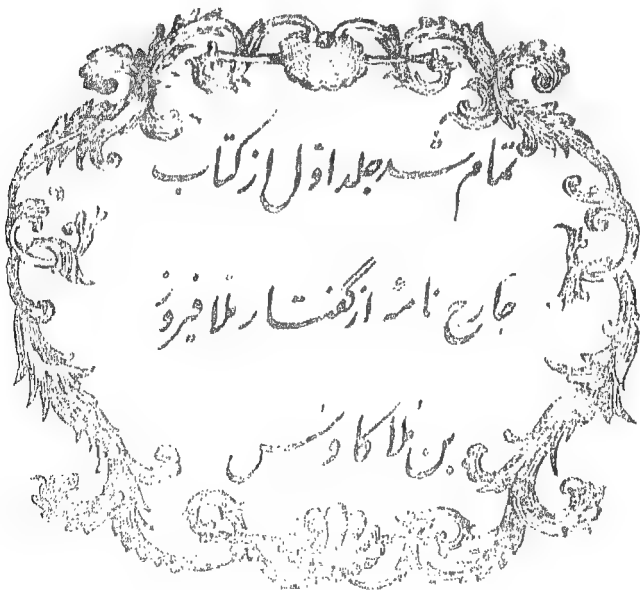 تمام شد جلد اول از کتاب
جارج نامه از گفتار ملا فیروز
بن ملا کاوس